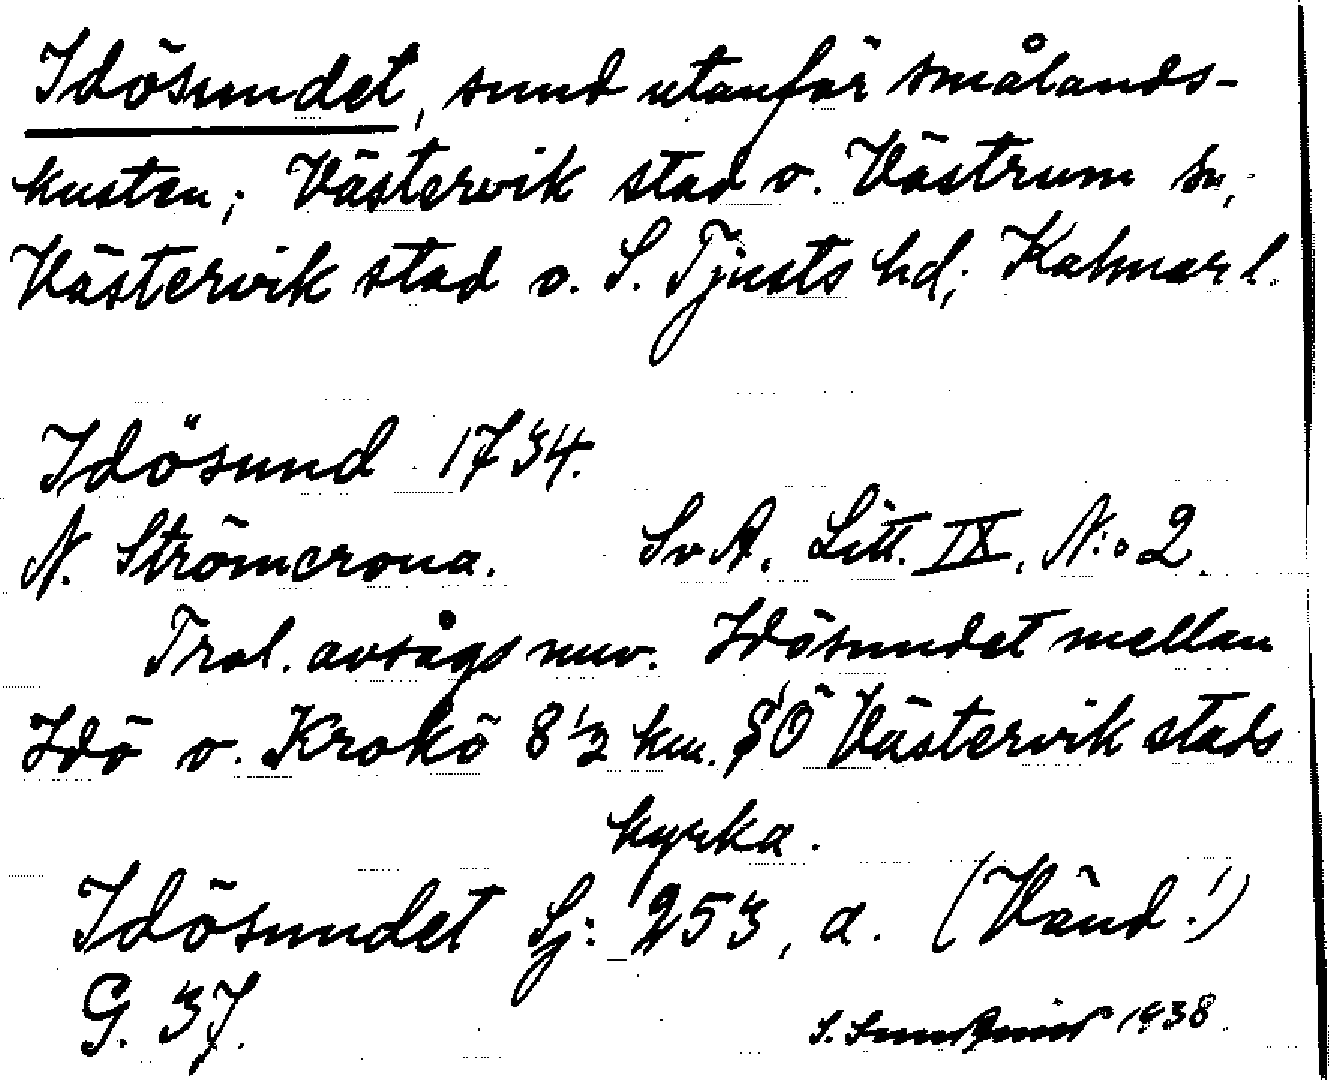 Idösundet, sund utanför smålands-
kusten; Västervik stad o. Västrum sn,
Västervik stad o. S. Tjusts hd; Kalmar l.
Idösund 1734.
N. Strömcrona. SvA. Litt. IX. N:o 2.
Trol. avsågs nuv. Idösundet mellan
Idö o. Krokö 8 1/2 km. SÖ Västervik stads
kyrka.
Idösundet Sj: 253, a. (Vänd!)
G. 37.
S. 1938